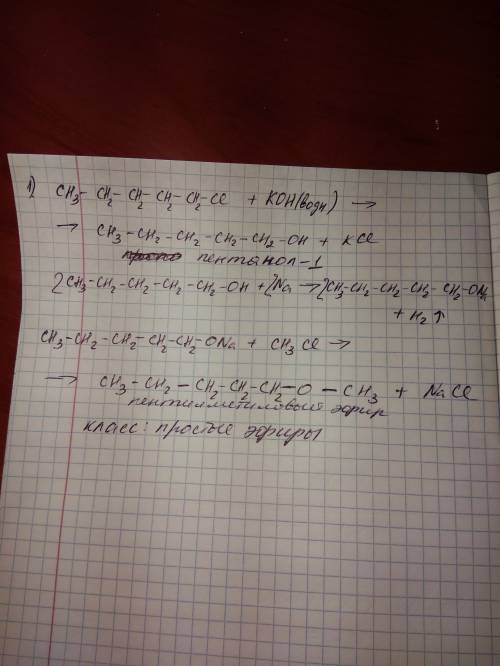 1) CH3- CH2- CH2- CH2- CH2-Cl + KOH(водн) →
→ CH3-CH2-CH2-CH2-CH2-OH + KCl
пентанол-1
2CH3-CH2-CH2-CH2-CH2-OH + 2Na → 2CH3-CH2-CH2-CH2-CH2-ONa
+ H2↑
CH3-CH2-CH2-CH2-CH2-ONa + CH3Cl →
→ CH3-CH2-CH2-CH2-CH2-O-CH3 + NaCl
пентилметиловый эфир
класс: простые эфиры